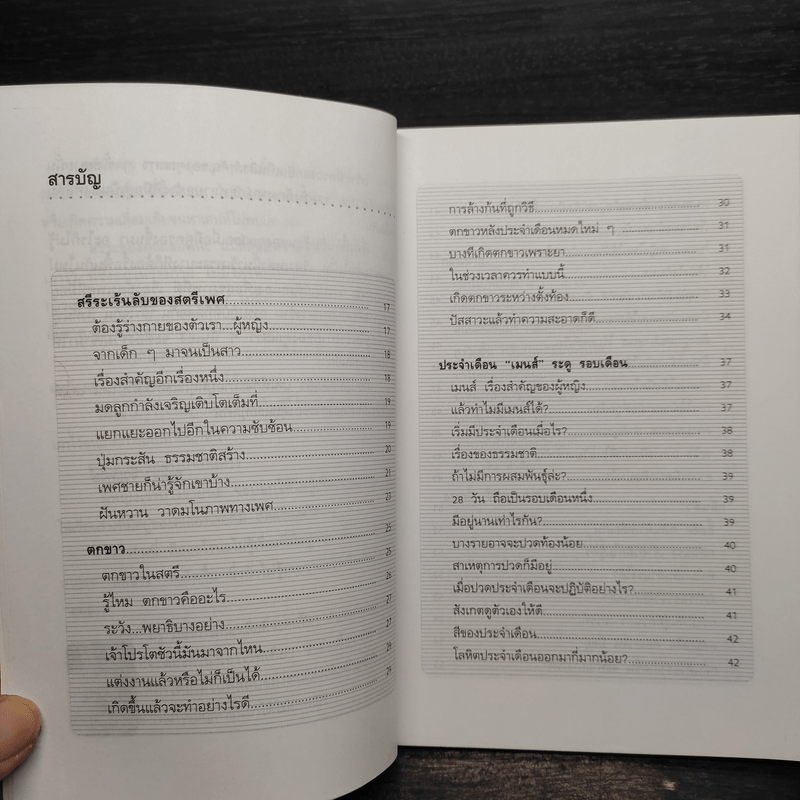 สารบัญ
สรีระเร้นลับของสตรีเพศ 17
ต้องรู้ร่างกายของตัวเรา...ผู้หญิง 17
จากเด็ก ๆ มาจนเป็นสาว 18
เรื่องสำคัญอีกเรื่องหนึ่ง 18
มดลูกกำลังเจริญเติบโตเต็มที่ 19
แยกแยะออกไปอีกในความซับซ้อน 19
ปุ่มกระสัน ธรรมชาติสร้าง 20
เพศชายก็น่ารู้จักเขาบ้าง 21
ฝันหวาน วาดมโนภาพทางเพศ 23
ตกขาว 25
ตกขาวในสตรี 25
รู้ไหม ตกขาวคืออะไร 26
ระวัง...พยาธิบางอย่าง 27
เจ้าโปรโตซัวนี้มันมาจากไหน 27
แต่งงานแล้วหรือไม่ก็เป็นได้ 29
เกิดขึ้นแล้วจะทำอย่างไรดี 29
การล้างก้นที่ถูกวิธี 30
ตกขาวหลังประจำเดือนหมดใหม่ ๆ 31
บางทีเกิดตกขาวเพราะยา 31
ในช่วงเวลาควรทำแบบนี้ 32
เกิดตกขาวระหว่างตั้งท้อง 33
ปัสสาวะแล้วทำความสะอาดก็ดี 34
ประจำเดือน "เมนส์" ระดู รอบเดือน 37
เมนส์ เรื่องสำคัญของผู้หญิง 37
แล้วทำไมมีเมนส์ได้? 37
เริ่มมีประจำเดือนเมื่อไร? 38
เรื่องของธรรมชาติ 38
ถ้าไม่มีการผสมพันธุ์ล่ะ? 39
28 วัน ถือเป็นรอบเดือนหนึ่ง 39
มีอยู่นานเท่าไรกัน? 39
บางรายอาจจะปวดท้องน้อย 40
สาเหตุการปวดก็มีอยู่ 40
เมื่อปวดประจำเดือนจะปฏิบัติอย่างไร? 41
สังเกตดูตัวเองให้ดี 41
สีของประจำเดือน 42
โลหิตประจำเดือนออกมากี่มากน้อย? 42